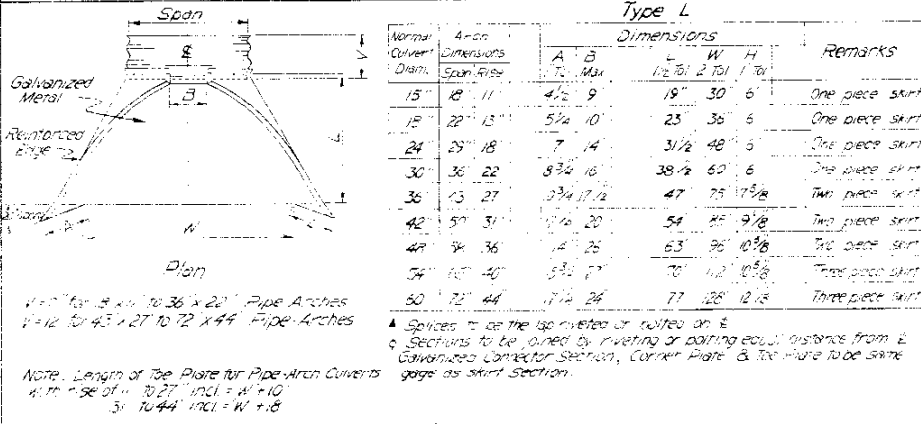 Span
Galvanized
Metal
Reinforced
Edge
B
L
W
Plan
to 36" x 22" Pipe Arches
V=12" for 43" x 27" to 72" x 44" Pipe-Arches
NOTE: Length of Toe Plate for Pipe-Arch Culverts
with rise of 11" to 27" incl. = W + 10"
31" to 44" incl. = W + 18"
Type L
Normal Culvert Diam. | Dimensions Span Rise | Dimensions A B Max. L 1½ Tol W 2 Tol H 1 Tol | Remarks
15" 18" 11" 4½ 9 19" 30" 6" One piece skirt
18" 22" 13" 5¼ 10" 23" 36" 6 One piece skirt
24 29" 18" 7 14 31½ 48" 6 One piece skirt
30" 36" 22 8¾ 16 38½ 60" 6 One piece skirt
36 43 27 17½ 47" 75 7⅝ Two piece skirt
42" 50" 31" 20 54" 85" 9⅛ Two piece skirt
48" 36" 26 63" 96" 10⅝ Two piece skirt
54" 40" 10⅝ Three piece skirt
60 72" 44" 24" 77 128" Three piece skirt
▲ Splices to be the lap riveted or bolted on ℄
Sections to be joined by riveting or bolting equal distance from ℄
Galvanized Connector Section, Corner Plate & Toe Plate to be same
gage as skirt Section.